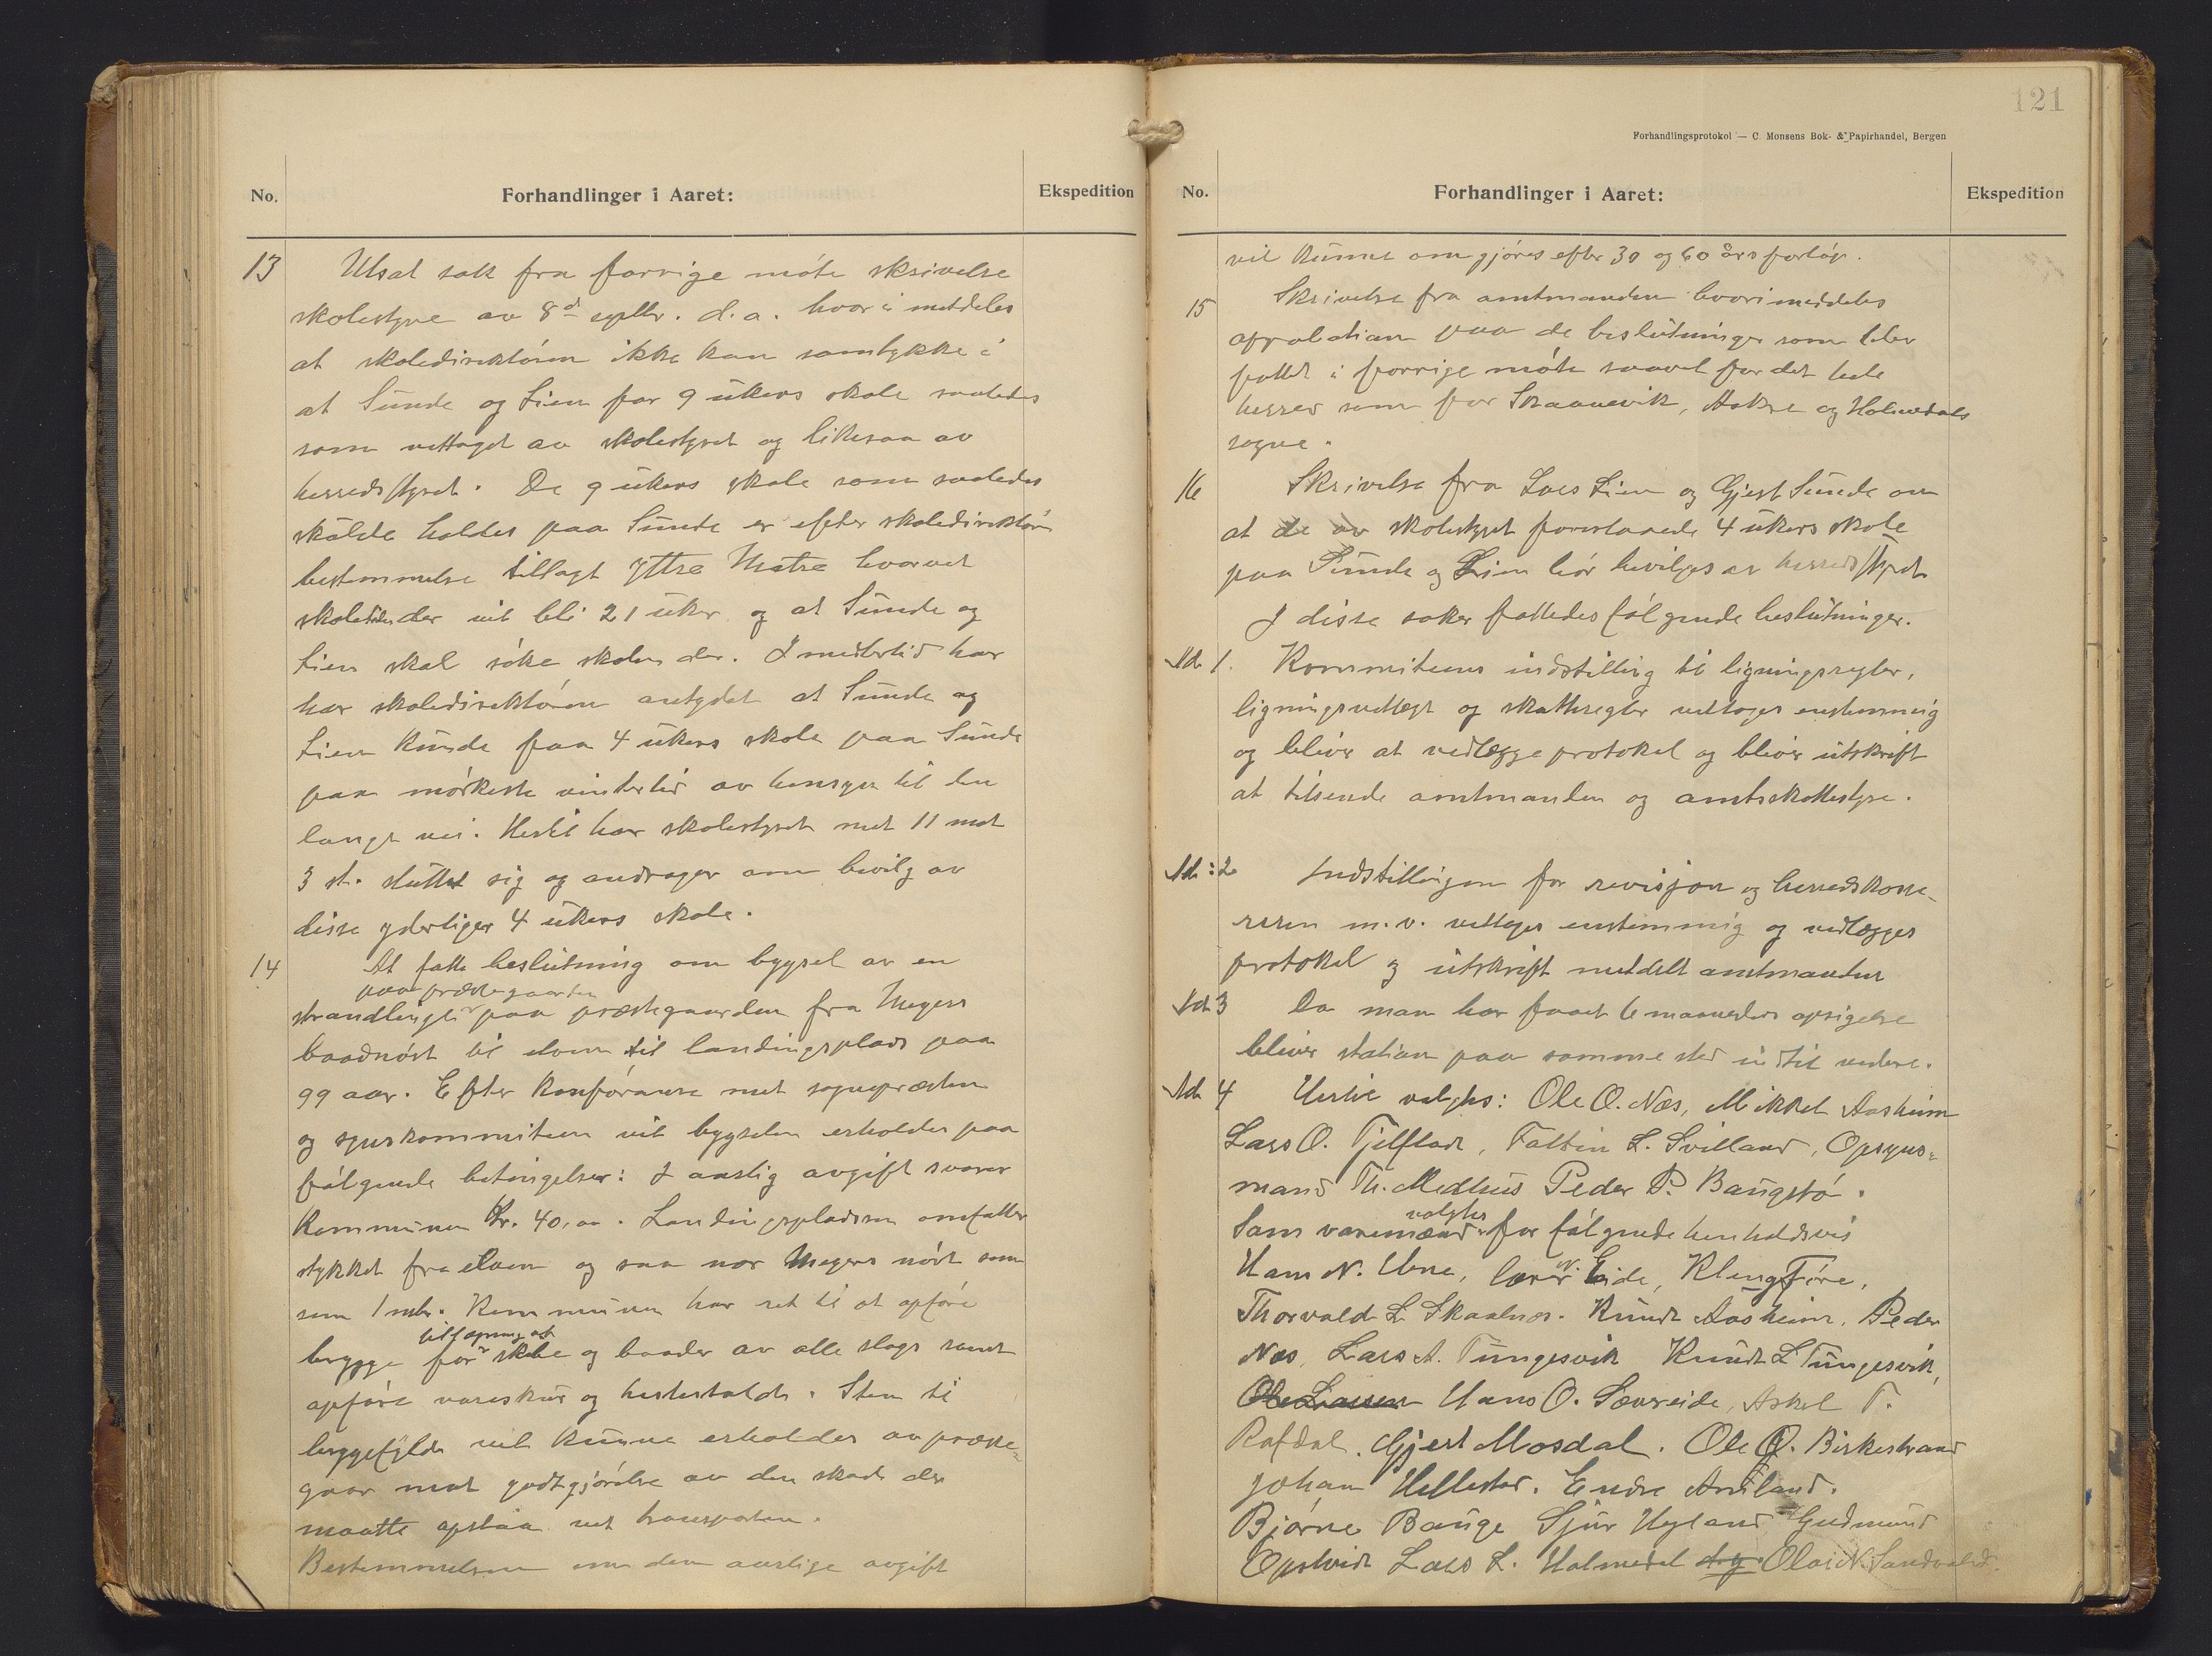 No.
Forhandlinger i Aaret:
Ekspedition
13 Utsat sak fra forrige møte skrivelse
skolestyre av 8de septbr. d.a. hvori meddeles
at skoledirektøren ikke kan samtykke i
at Sunde og Lien faar 9 ukers skole saaledes
som vettaget av skolestyret og likesaa av
herredsstyret. De 9 ukers skole som saaledes
skulde holdes paa Sunde er efter skoledirektør
bestemmelse tillagt Yttre Matre hvorved
skoletiden der vil bli 21 uker og at Sunde og
Lien skal søke skolen der. Imidlertid har
har skoledirektøren antydet at Sunde og
Lien kunde faa 4 ukers skole paa Sunde
paa mørkeste vintertid av hensyn til den
lange vei. Hertil har skolestyret met 11 mot
3 st. sluttet sig og andrager om bevilg av
disse yderliger 4 ukers skole.
14 At fatte beslutning om bygsel av en
paa prestegaarden
strandlinje paa prestegaarden fra Meyers
baadnøst til elven til landingsplads paa
99 aar. Efter konferanse met sognepresten
og synskommiteen vil bygselen erholdes paa
følgende betingelser: I aarlig avgift svarer
Kommunen Kr. 40,00. Landingspladsen omfatter
stykket fra elven og saa nær Meyers nøst som
som 1 mtr. Kommunen har ret til at opføre
tillægning at
brygge for skibe og baader av alle slags samt
opføre vareskur og hestestalde. Sten til
bryggefyld vil kunne erholdes av præste-
gaar mot godtgjørelse av den skade der
maatte opstaa vet transporten.
Bestemmelsen om den aarlige avgift
121
Forhandlingsprotokol — C. Monsens Bok- & Papirhandel, Bergen
No.
Forhandlinger i Aaret:
Ekspedition
vil kunne omgjøres efter 30 og 60 års forløp.
15 Skrivelse fra amtmanden hvori meddeles
approbation paa de beslutninger som blev
fattet i forrige møte saavel for det hele
herred som for Skaanevik, Aakre og Holmedals
sogne.
16 Skrivelse fra Lars Lien og Gjert Sunde om
at de av skolestyret foreslaaede 4 ukers skole
paa Sunde og Lien bør bevilges av herredsstyret
I disse saker fattedes følgende beslutninger.
Ad. 1. Kommiteens indstilling til ligningsregler,
ligningsvedtægt og skatteregler vettages enstemmig
og bliver at vedlægge protokol og bliver utskrift
at tilsende amtmanden og amtsskattestyre.
Ad: 2 Indstillingen for revisjon og herredskasse-
reren m.v. vettages enstemmig og vedlægges
protokol og utskrift meddelt amtmanden
Ad 3 Da man har faaet 6 maaneders opsigelse
bliver station paa samme sted indtil videre.
Ad 4 Hertil valgtes: Ole O. Næs, Mikkel Aasheim
Lars O. Tjelflaat, Faltin L. Svilland, Opsyns-
mand Th. Medhus Peder P. Baugstø.
valgtes
Som varamænd for følgende henholdsvis
Hans N. Ebne, lærer N. Eide, Kleng Føre,
Thorvald L Skaalnes. Knut Aasheim, Peder
Næs, Lars A. Tungesvik Knut L Tungesvik,
Ole Larsen Hans O. Sævreide, Askel T.
Rafdal. Gjert Mosdal. Ole O. Birkestrand
Johan Hellestad. Endre Anuland.
Bjørne Bauge Sjur Høyland Gudmund
Opstveit Lars L. Holmedal og Olai N. Sandvold.